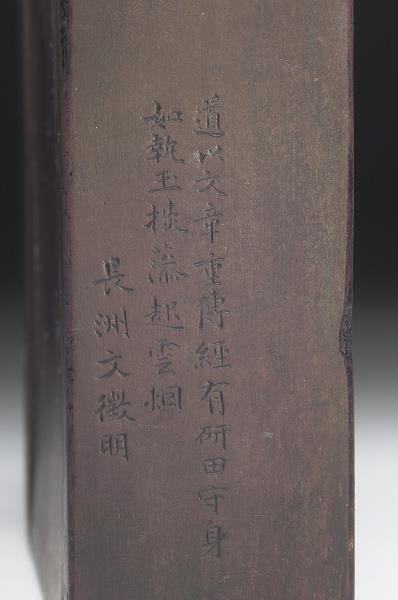 道以文章重傳經有研田守身
如執玉掞藻起雲烟
長洲文徵明